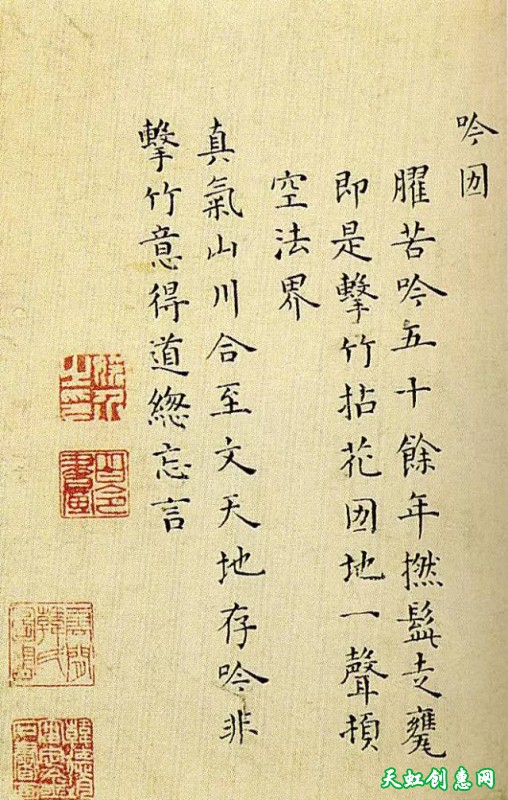 吟㘞
曜苦吟五十餘年撚髭走甕
即是擊竹拈花㘞地一聲頓
空法界
真氣山川合至文天地存吟非
擊竹意得道緫忘言
天虹创惠网